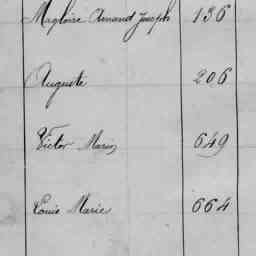 Magloire Armand Joseph 136
Auguste 206
Victor Marie 649
Louis Marie 664